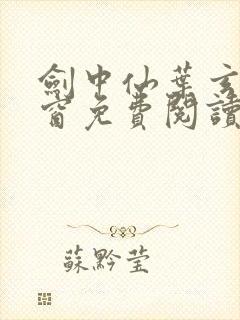 劍中仙葉玄
窗免費閱讀
蘇黔瑩